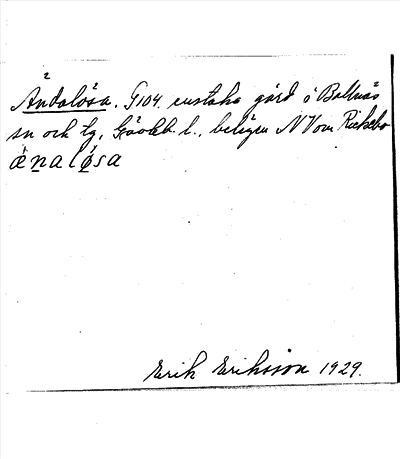 Ändalösa. G104. enstaka gård i Bollnäs
sn och tg, Gävleb. l., belägen NV om Rickebo
ä̀ṉalǿ̱sa
Erik Eriksson 1929.